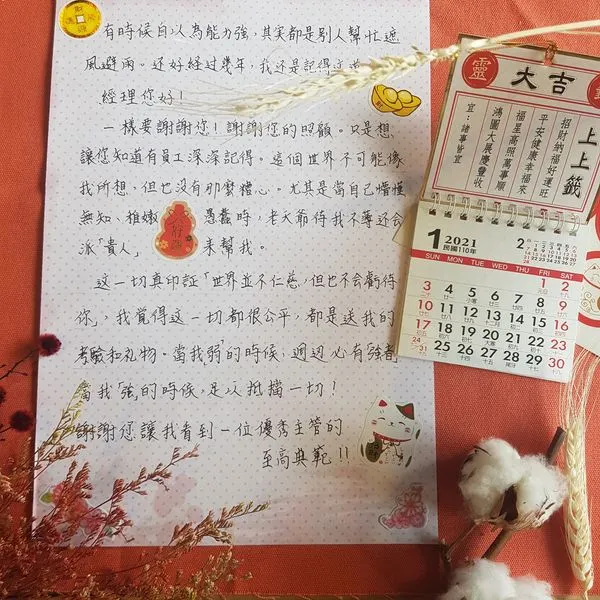 有時候自以為能力強，其實都是別人幫忙遮
風避雨。还好經过幾年，我还是記得这道
經理您好！
一樣要謝謝您！謝謝您的照顧。只是想
讓您知道有員工深深記得。這個世界不可能像
我所想，但也沒有那麼糟心。尤其是當自己懵懂
無知、稚嫩 愚蠢時，老天爺待我不薄还会
派「貴人」 來幫我。
這一切真印証「世界並不仁慈，但也不会虧待
你」，我覺得這一切都很公平，都是送我的
考驗和礼物。當我「弱」的時候，週边必有「強者」
當我「強」的時候，足以抵擋一切！
謝謝您讓我看到一位優秀主管的
至高典範!!
靈
大吉
上上籤
招財納福好運旺
平安健康幸福來
福星高照萬事順
鴻圖大展慶豐收
宜：諸事皆宜
1 2021
民國110年
2
SUN MON TUE WED THU FRI SAT
1 2
3 4 5 6 7 8 9
10 11 12 13 14 15 16
17 18 19 20 21 22 23
24 31 25 26 27 28 29 30